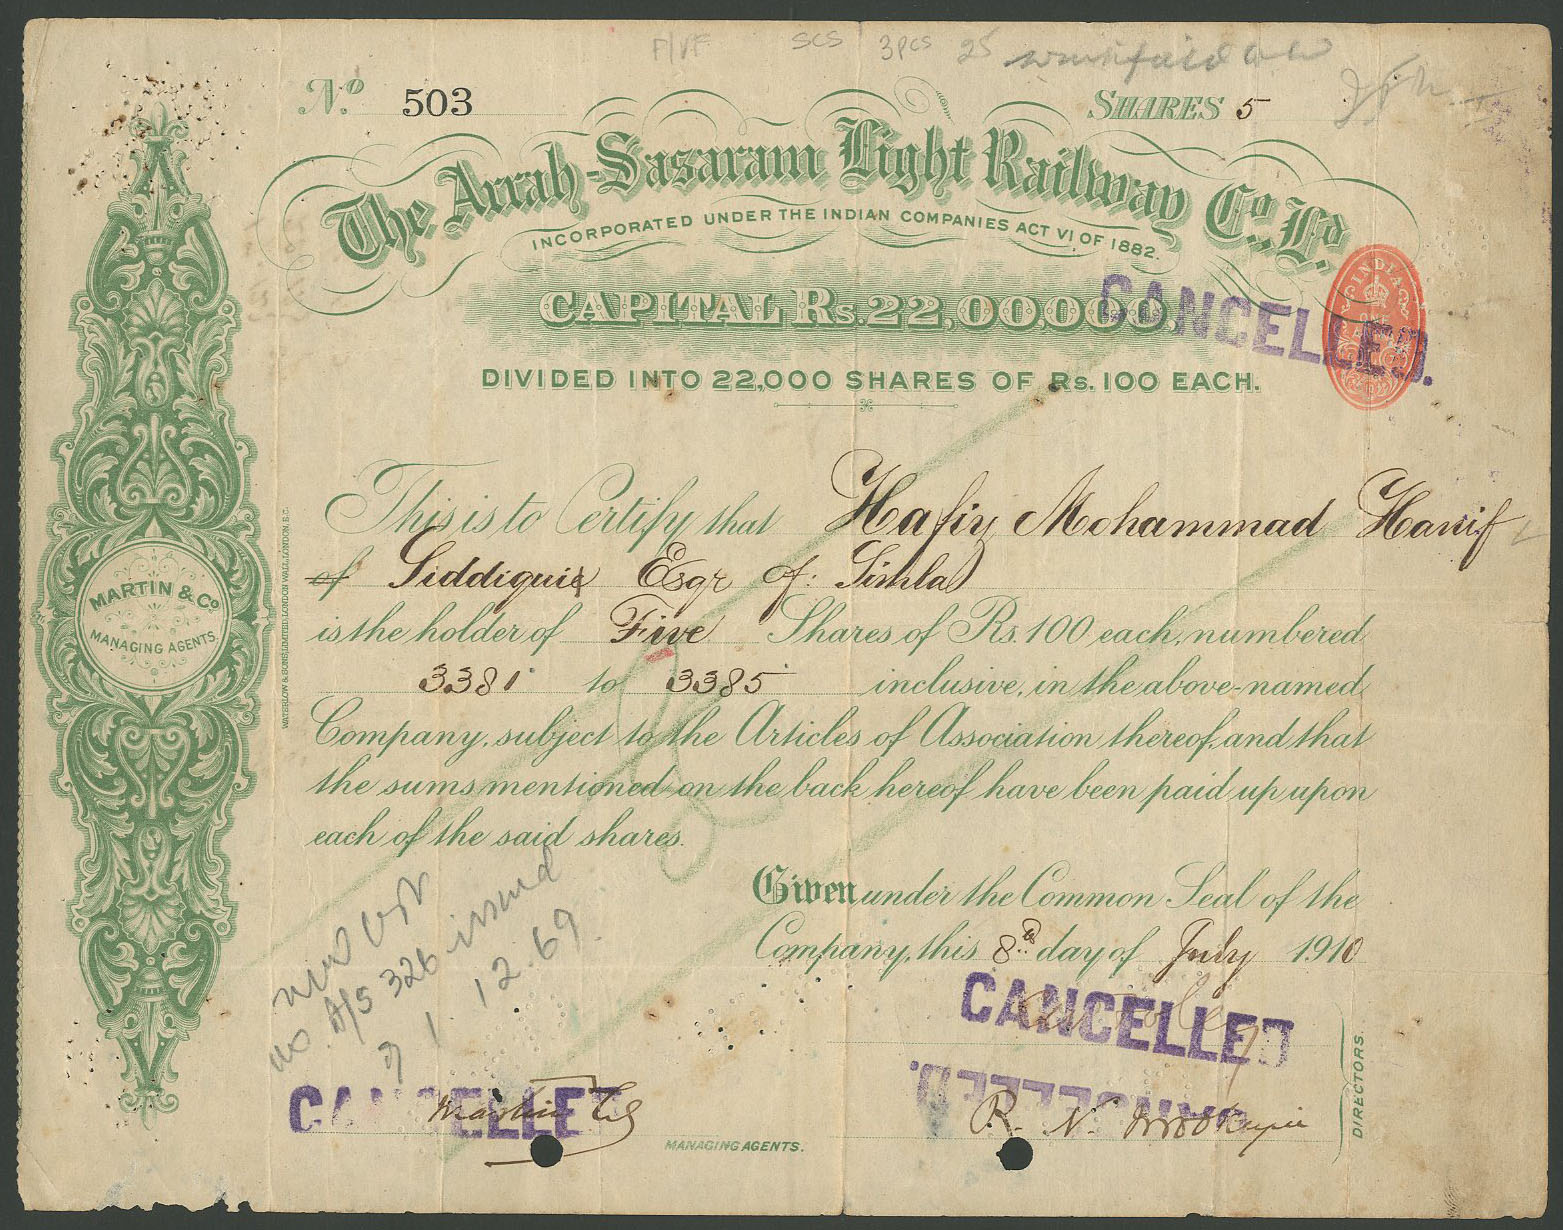 F/VF SCS 3pcs 25
No 503 SHARES 5
The Arrah-Sasaram Light Railway Co., Ld.
INCORPORATED UNDER THE INDIAN COMPANIES ACT VI OF 1882.
CAPITAL Rs. 22,00,000,
CANCELLED.
INDIA
ONE
DIVIDED INTO 22,000 SHARES OF Rs. 100 EACH.
This is to Certify that Hafiz Mohammad Hanif
of Siddiquie Esqr of: Simla
is the holder of Five Shares of Rs. 100 each, numbered
3381 to 3385 inclusive, in the above-named
Company, subject to the Articles of Association thereof, and that
the sums mentioned on the back hereof have been paid up upon
each of the said shares.
Given under the Common Seal of the
Company, this 8th day of July 1910
MARTIN & Co
MANAGING AGENTS.
WATERLOW & SONS LIMITED, LONDON WALL, LONDON, E.C.
new
no. A/S 326 issued
1.12.69.
CANCELLED
CANCELLED
CANCELLED
Martin & Co
R. N. Mookerjee
MANAGING AGENTS.
DIRECTORS.